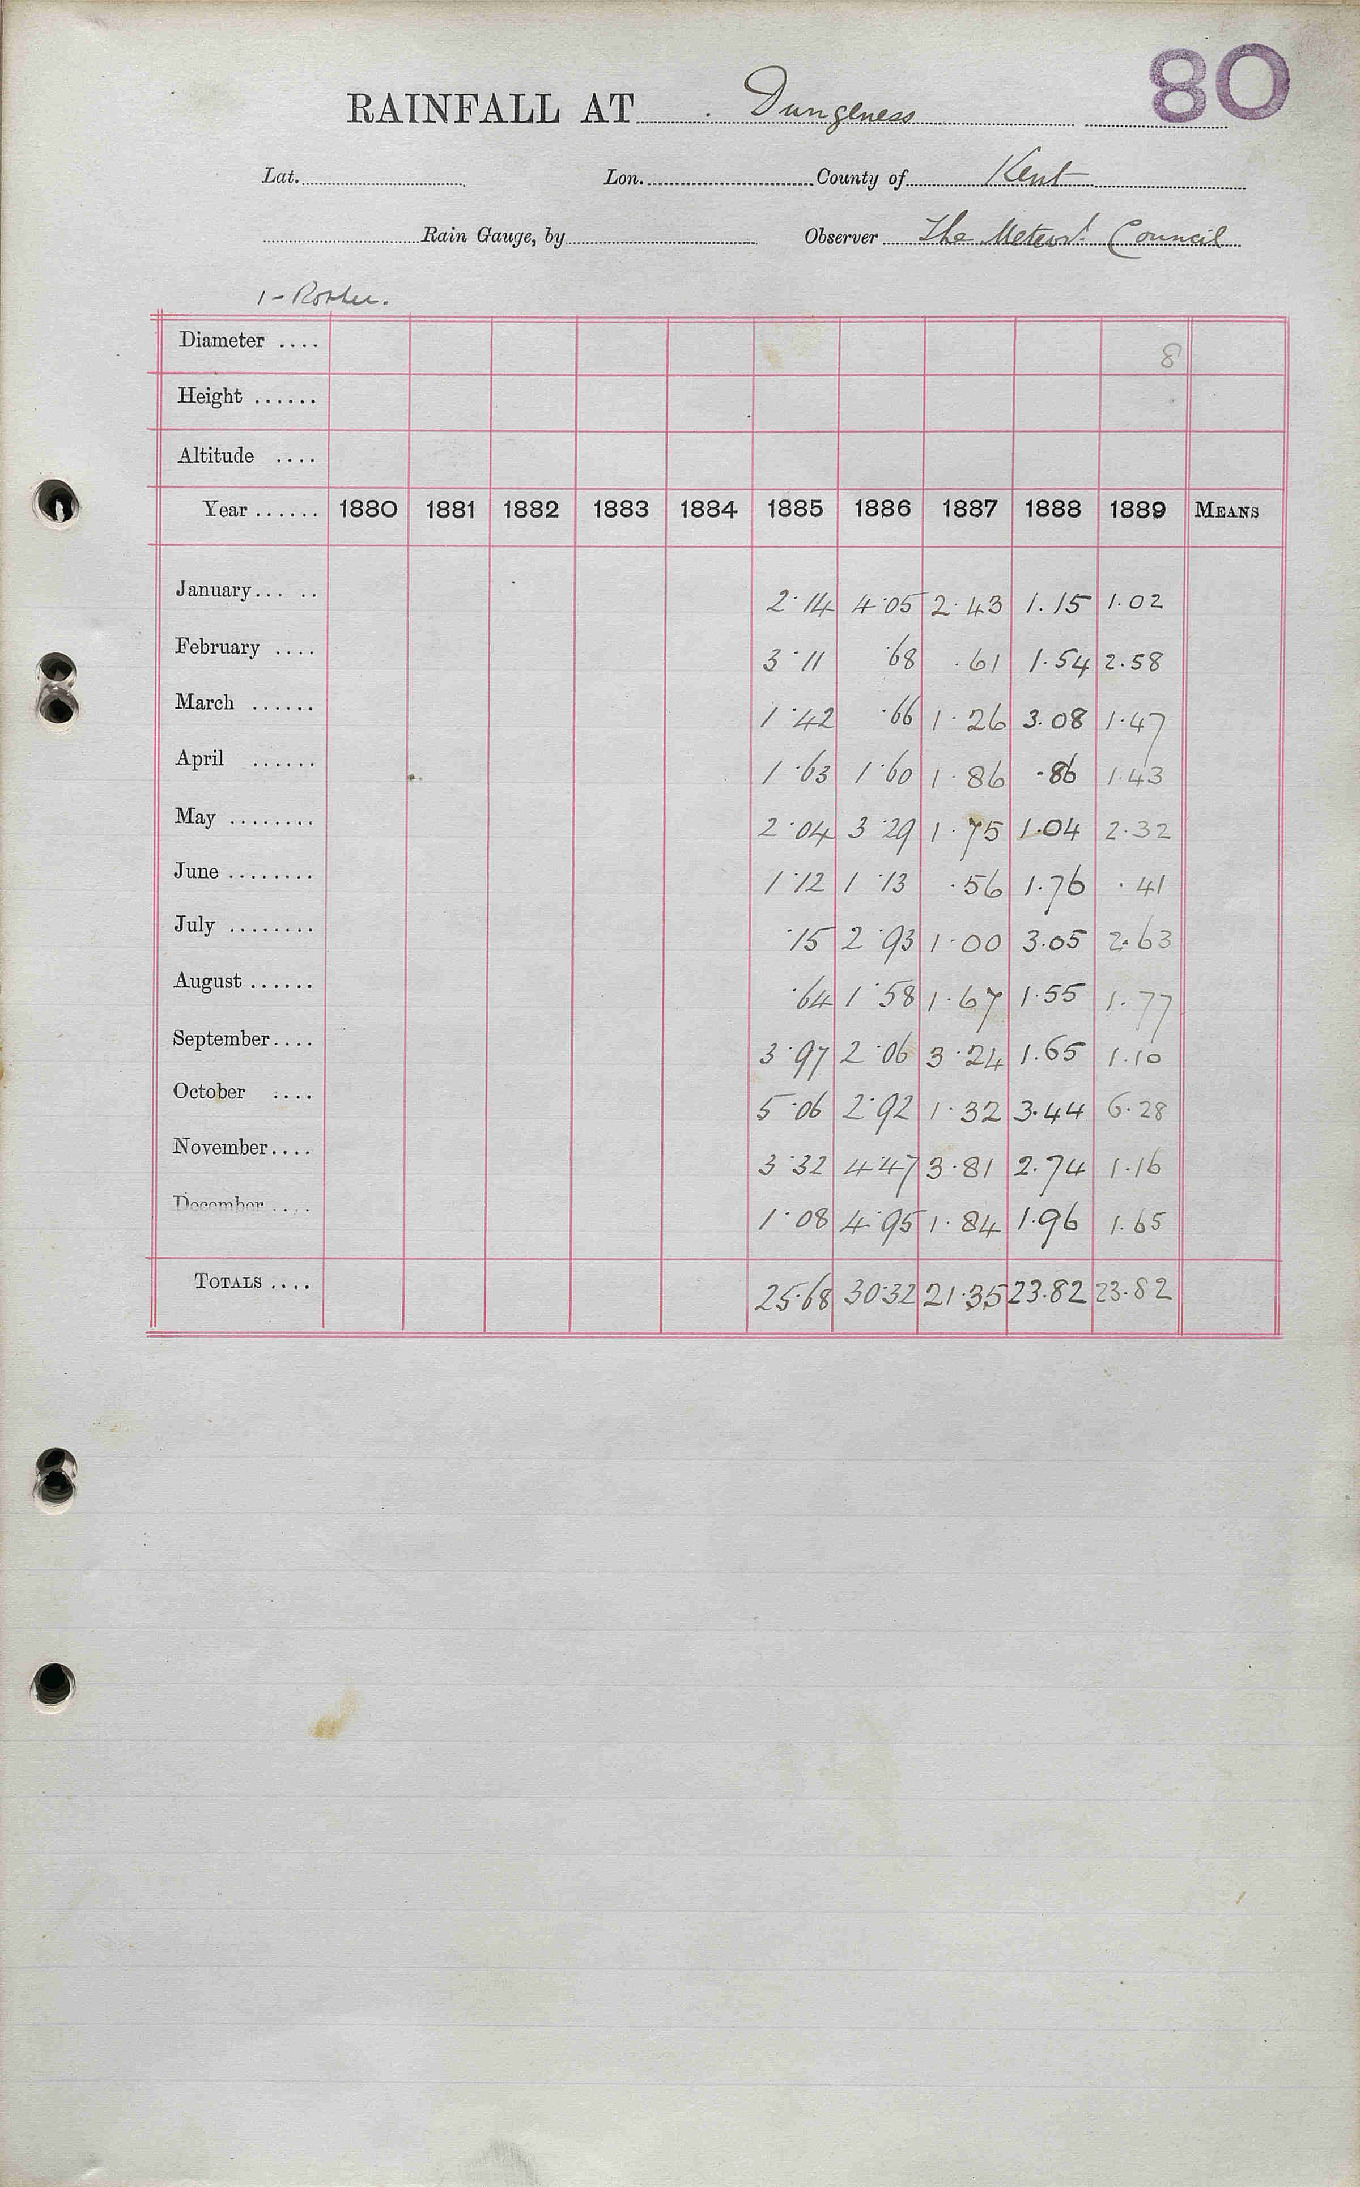 80
RAINFALL AT Dungeness
Lat. Lon. County of Kent
Rain Gauge, by Observer The Meteorl. Council
Diameter .... 8
Height ......
Altitude ....
Year ...... 1880 1881 1882 1883 1884 1885 1886 1887 1888 1889 MEANS
January... .. 2.14 4.05 2.43 1.15 1.02
February .... 3.11 .68 .61 1.54 2.58
March ...... 1.42 .66 1.26 3.08 1.47
April ...... 1.63 1.60 1.86 .86 1.43
May ........ 2.04 3.29 1.75 1.04 2.32
June ........ 1.12 1.13 .56 1.76 .41
July ........ .15 2.93 1.00 3.05 2.63
August ...... .64 1.58 1.67 1.55 1.77
September.... 3.97 2.06 3.24 1.65 1.10
October .... 5.06 2.92 1.32 3.44 6.28
November.... 3.32 4.47 3.81 2.74 1.16
December .... 1.08 4.95 1.84 1.96 1.65
TOTALS .... 25.68 30.32 21.35 23.82 23.82